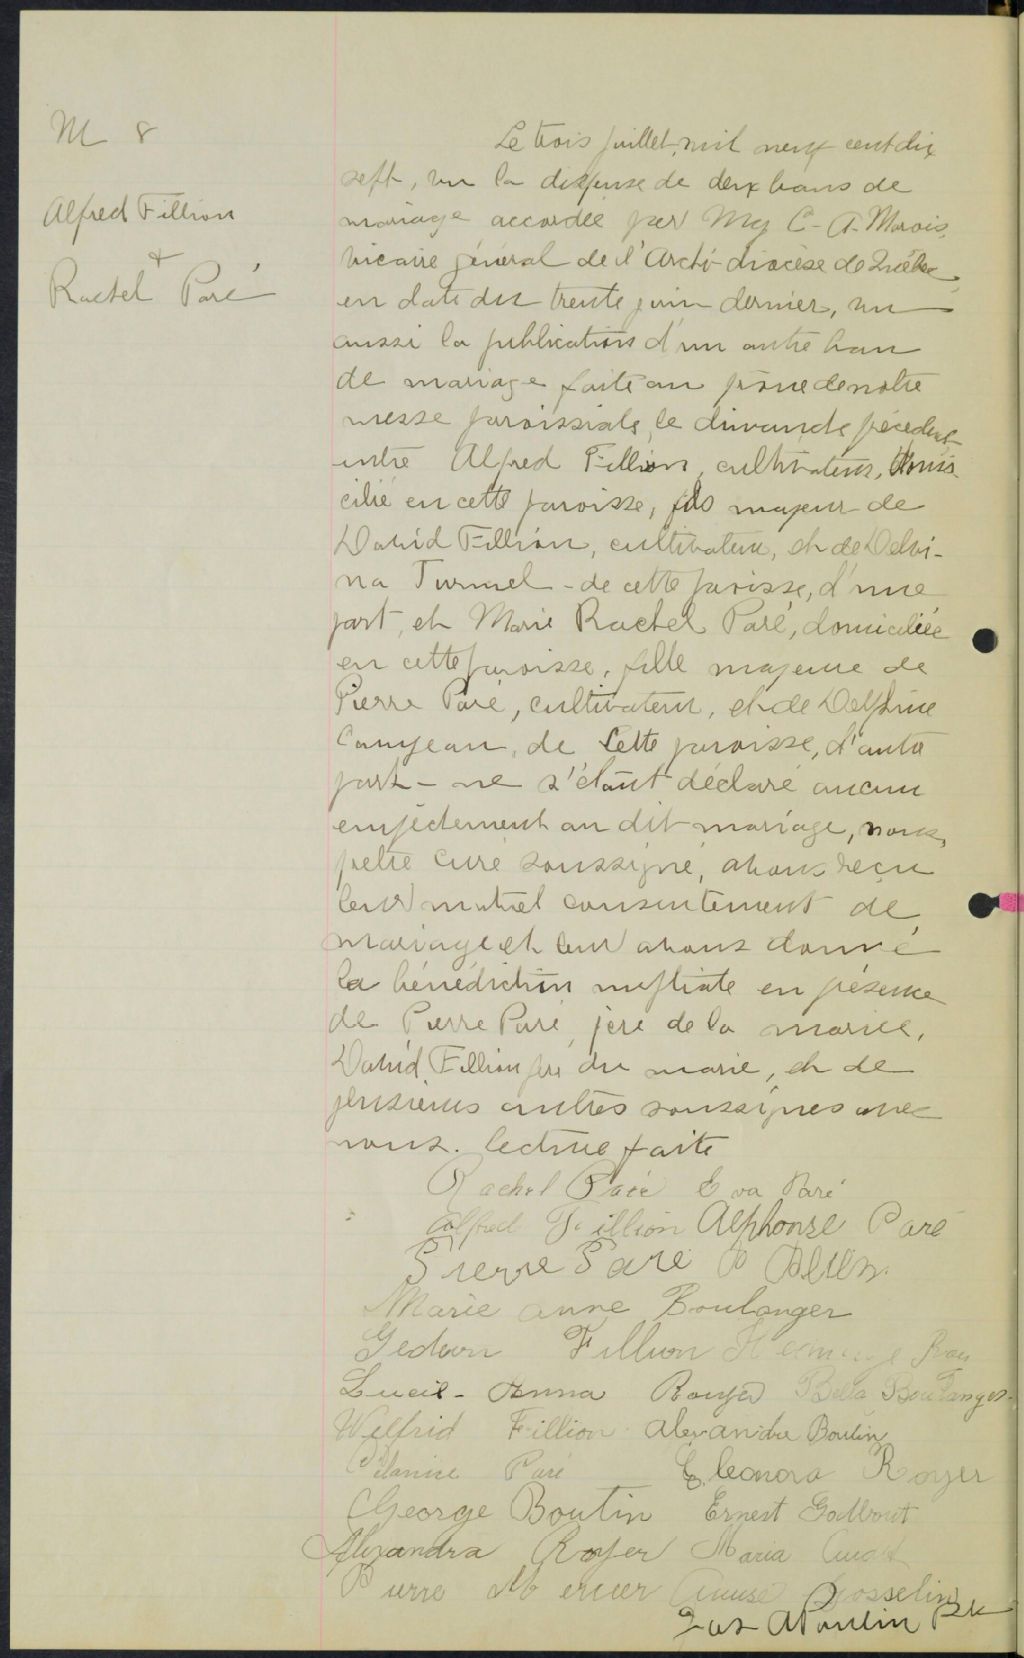 M 8
Alfred Fillion
+
Rachel Paré
Le trois juillet, mil neuf cent dix
sept, vu la dispense de deux bans de
mariage accordée par Mgr C-A. Marois,
vicaire général de l'Archi-diocèse de Québec,
en date du trente juin dernier, vu
aussi la publication d'un autre ban
de mariage faite au prône de notre
messe paroissiale, le dimanche précédent
entre Alfred Fillion, cultivateur, domi-
cilié en cette paroisse, fils majeur de
David Fillion, cultivateur, et de Delvi-
na Turmel - de cette paroisse, d'une
part, et Marie Rachel Paré, domiciliée
en cette paroisse, fille majeure de
Pierre Paré, cultivateur, et de Delphine
de cette paroisse, d'autre
part - ne s'étant déclaré aucun
empêchement au dit mariage, nous,
prêtre curé soussigné, avons reçu
leur mutuel consentement de
mariage et leur avons donné
la bénédiction nuptiale en présence
de Pierre Paré, père de la mariée,
David Fillion père du marié, et de
plusieurs autres soussignés avec
nous. lecture faite
Rachel Paré Eva Paré
Alfred Fillion Alphonse Paré
Pierre Paré
Marie anne Boulanger
Gedeon Fillion
Lucie-Anna Royer Bella Boulanger
Wilfrid Fillion Alexandre Boutin
Paré Eleonora Royer
George Boutin Ernest Galbrout
Alexandra Royer Maria
Pierre Mercier Gosselin
Jos A Poulin Ptr